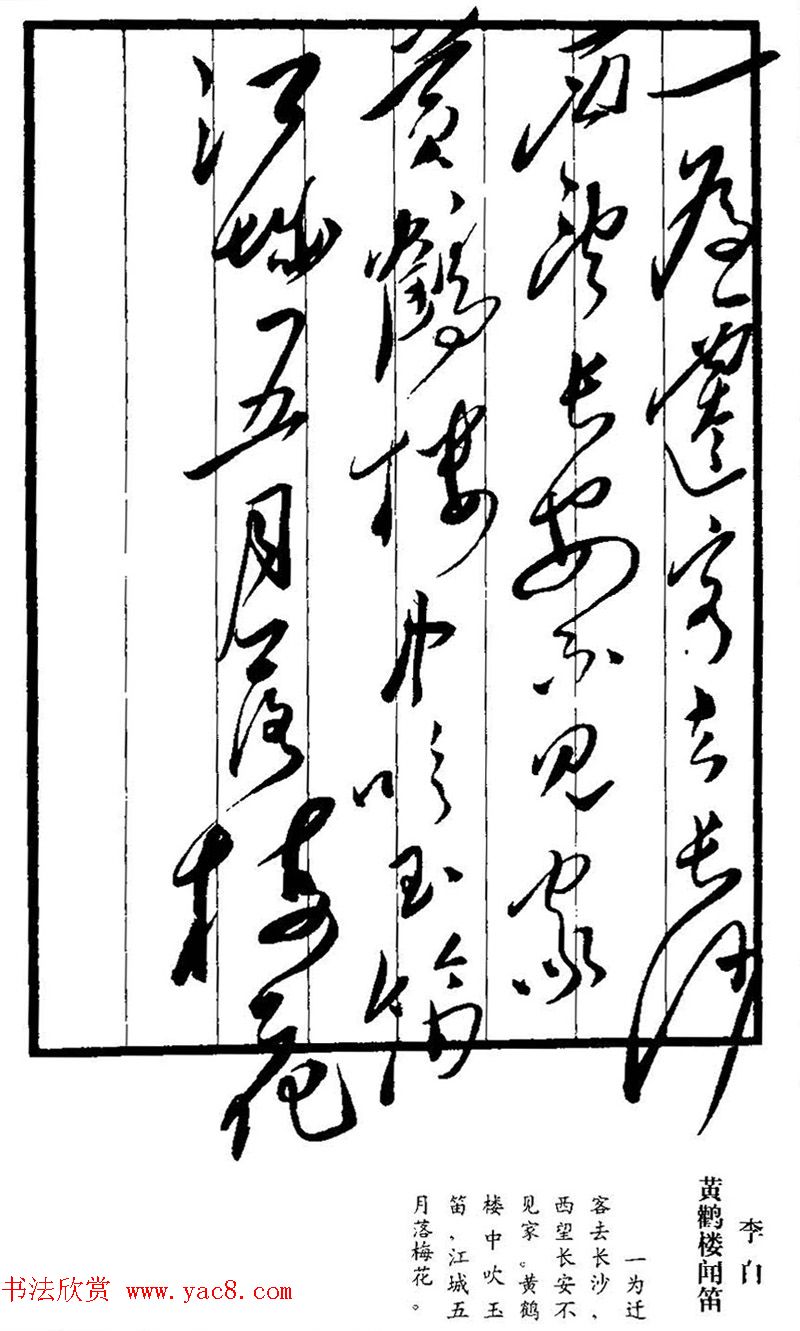 一為遷客去長沙
西望長安不見家
黄鶴樓中吹玉笛
江城五月落梅花
李白
黄鹳楼闻笛
一为迁
客去长沙，
西望长安不
见家。黄鹤
楼中吹玉
笛，江城五
月落梅花。
书法欣赏 www.yac8.com